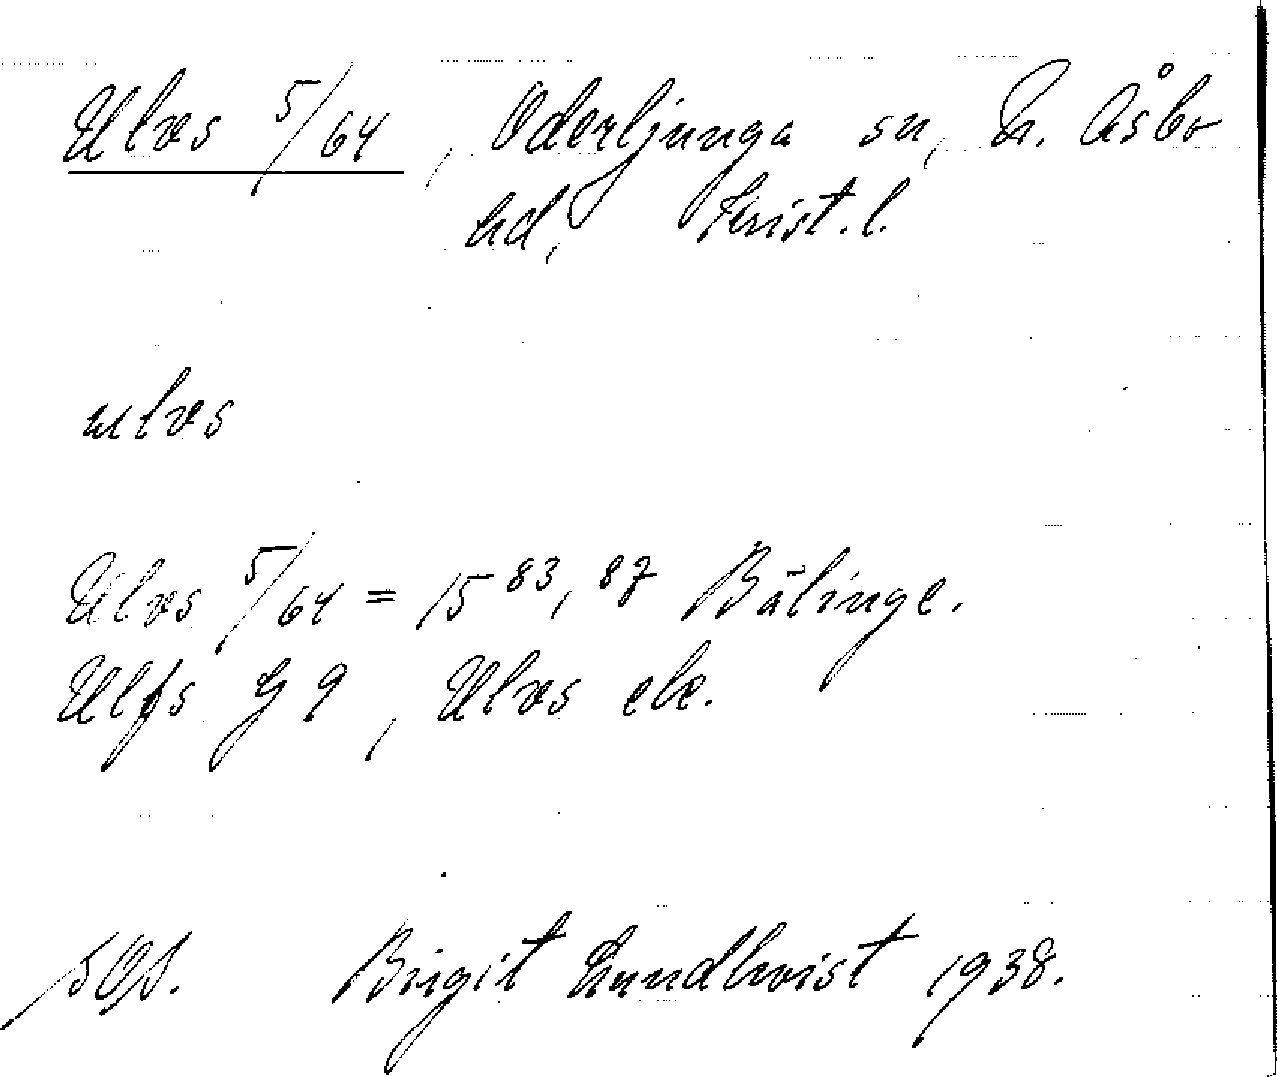 Ulvs 5/64, Oderljunga sn, N. Åsbo
hd, Krist. l.
ulvs
Ulvs 5/64 = 15 83, 87 Bälinge.
Ulfs G 9, Ulvs ek.
Birgit Lundkvist 1938.